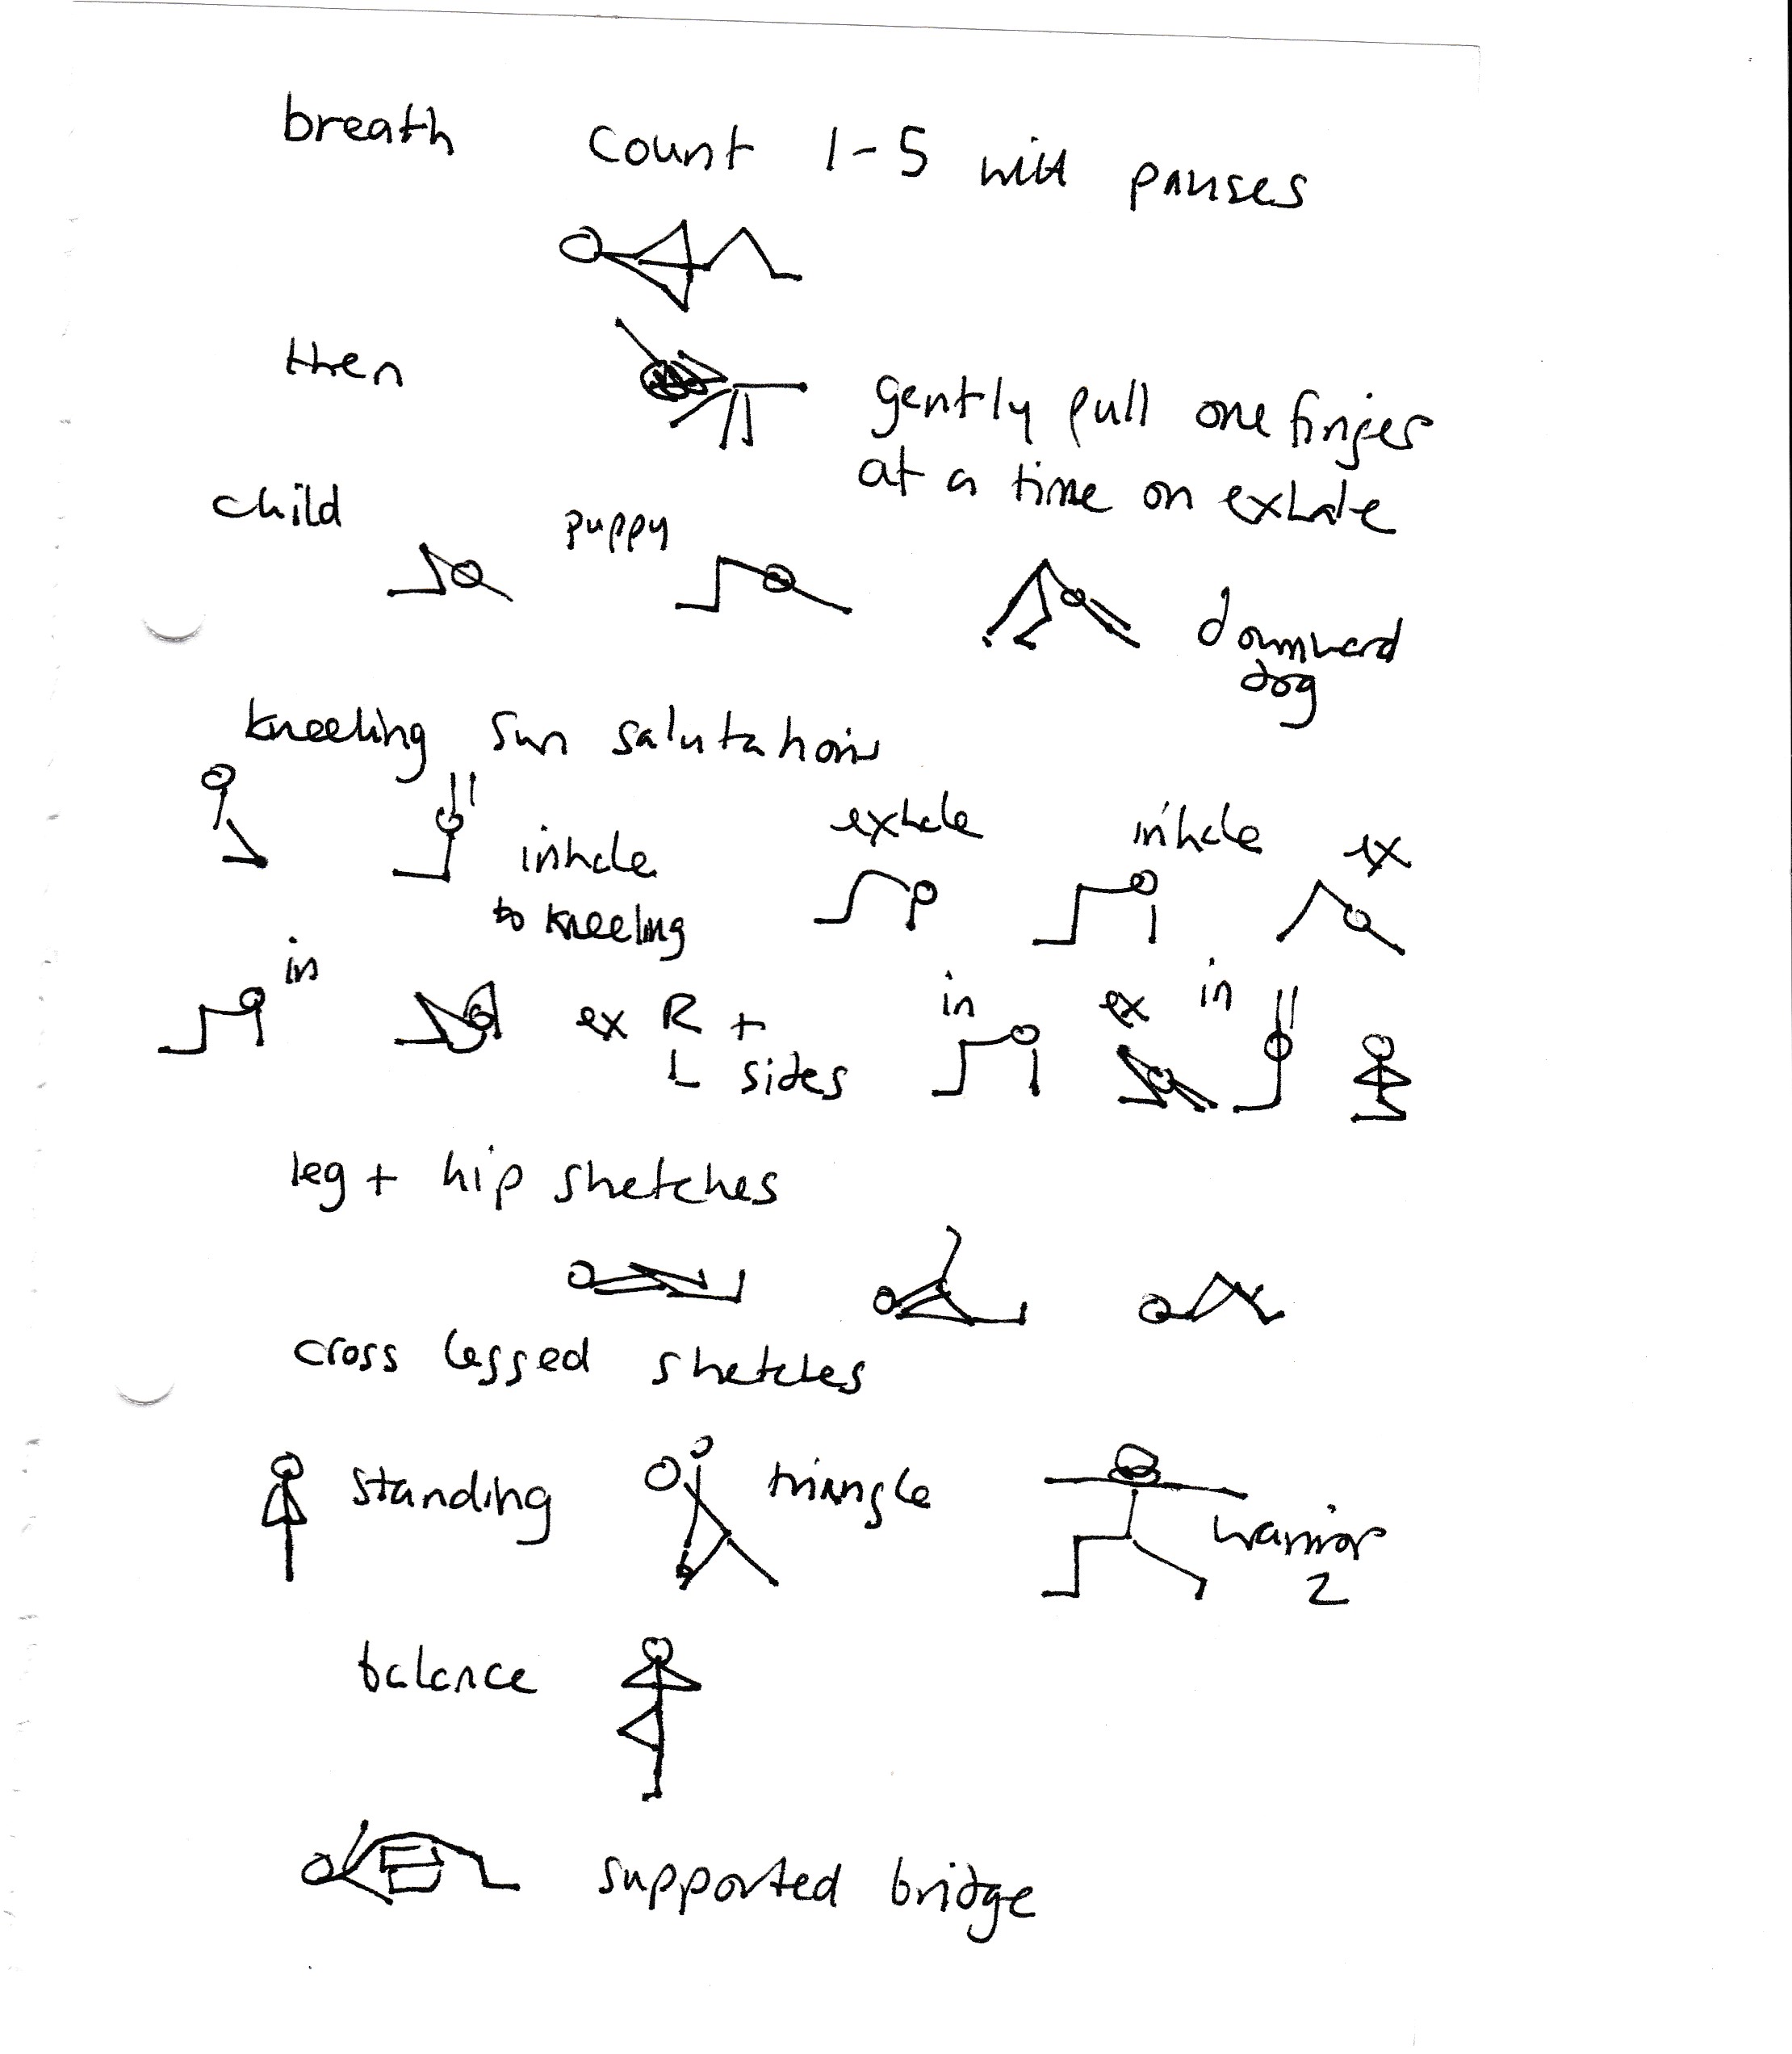 breath count 1-5 with pauses
then
gently pull one finger
at a time on exhale
child puppy
downward
dog
kneeling sun salutations
inhale
to kneeling
exhale inhale ex
in
ex R +
L sides
in ex in
leg + hip stretches
cross legged stretches
standing triangle
warrior
2
balance
supported bridge